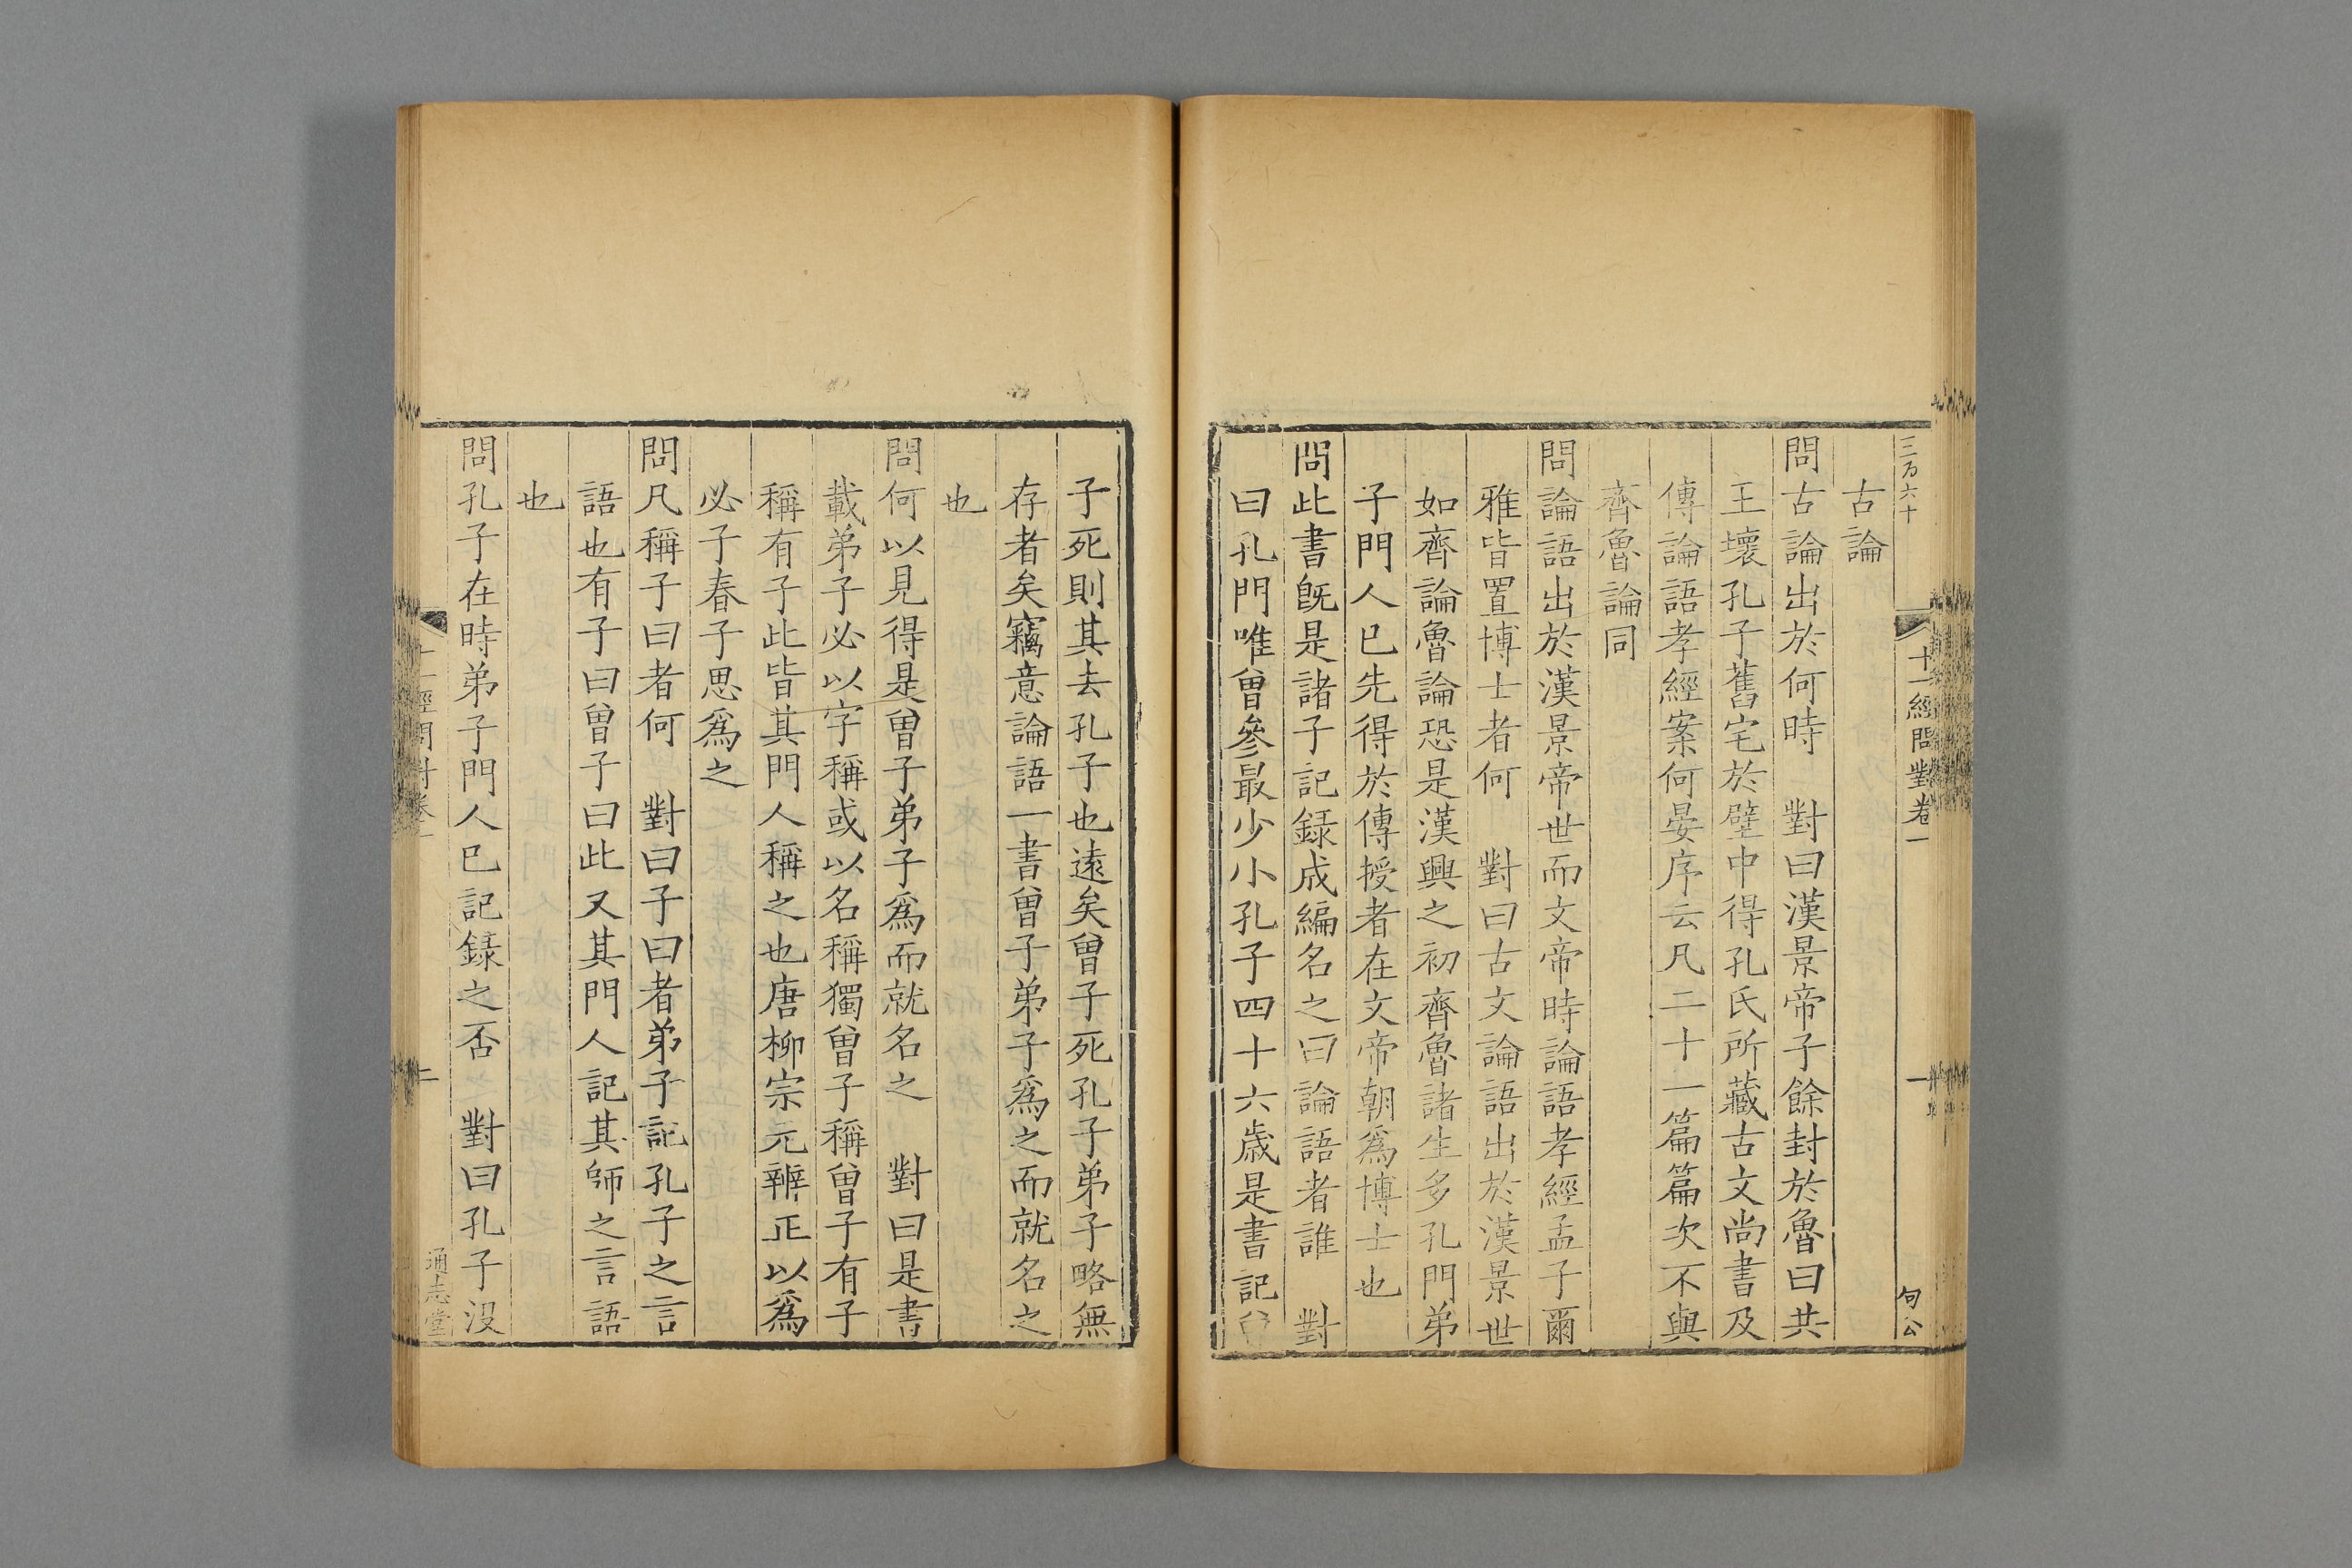 三百六十
十一經問對卷一
一
句公
古論
問古論出於何時　對曰漢景帝子餘封於魯曰共
王壞孔子舊宅於壁中得孔氏所藏古文尚書及
傳論語孝經案何晏序云凡二十一篇篇次不與
齊魯論同
問論語出於漢景帝世而文帝時論語孝經孟子爾
雅皆置博士者何　對曰古文論語出於漢景世
如齊論魯論恐是漢興之初齊魯諸生多孔門弟
子門人已先得於傳授者在文帝朝爲博士也
問此書旣是諸子記録成編名之曰論語者誰　對
曰孔門唯曾參最少小孔子四十六歲是書記
子死則其去孔子也遠矣曾子死孔子弟子略無
存者矣竊意論語一書曾子弟子爲之而就名之
也
問何以見得是曾子弟子爲而就名之　對曰是書
載弟子必以字稱或以名稱獨曾子稱曾子有子
稱有子此皆其門人稱之也唐柳宗元辨正以爲
必子春子思爲之
問凡稱子曰者何　對曰子曰者弟子記孔子之言
語也有子曰曾子曰此又其門人記其師之言語
也
問孔子在時弟子門人已記録之否　對曰孔子沒
十一經問對卷一
二
通志堂